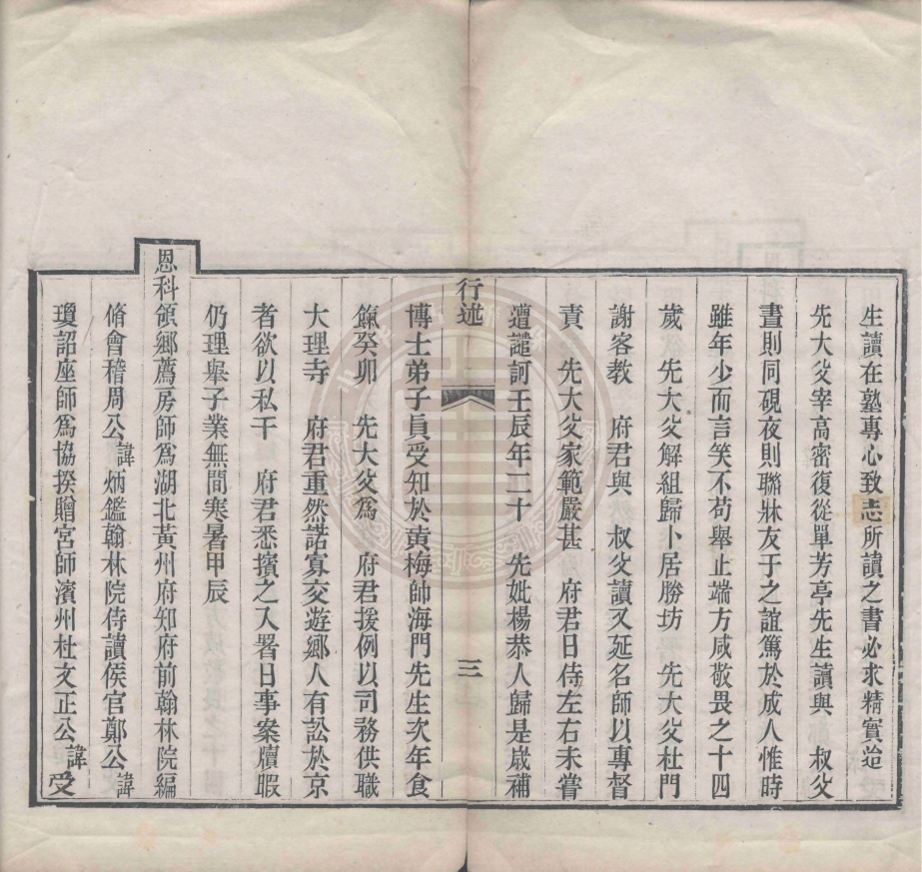 生讀在塾專心致志所讀之書必求精實迨
先大父宰高密復從單芳亭先生讀與 叔父
晝則同硯夜則聯牀友于之誼篤於成人惟時
雖年少而言笑不苟舉止端方咸敬畏之十四
歲 先大父解組歸卜居勝坊 先大父杜門
謝客教 府君與 叔父讀又延名師以專督
責 先大父家範嚴甚 府君日侍左右未嘗
遭譴訶壬辰年二十 先妣楊恭人歸是歲補
行述 三
博士弟子員受知於黃梅帥海門先生次年食
餼癸卯 先大父爲 府君援例以司務供職
大理寺 府君重然諾寡交遊鄉人有訟於京
者欲以私干 府君悉擯之入署日事案牘暇
仍理舉子業無間寒暑甲辰
恩科領鄉薦房師爲湖北黃州府知府前翰林院編
脩會稽周公諱炳鑑翰林院侍讀侯官鄭公諱
瓊詔座師爲協揆贈宮師濱州杜文正公諱受